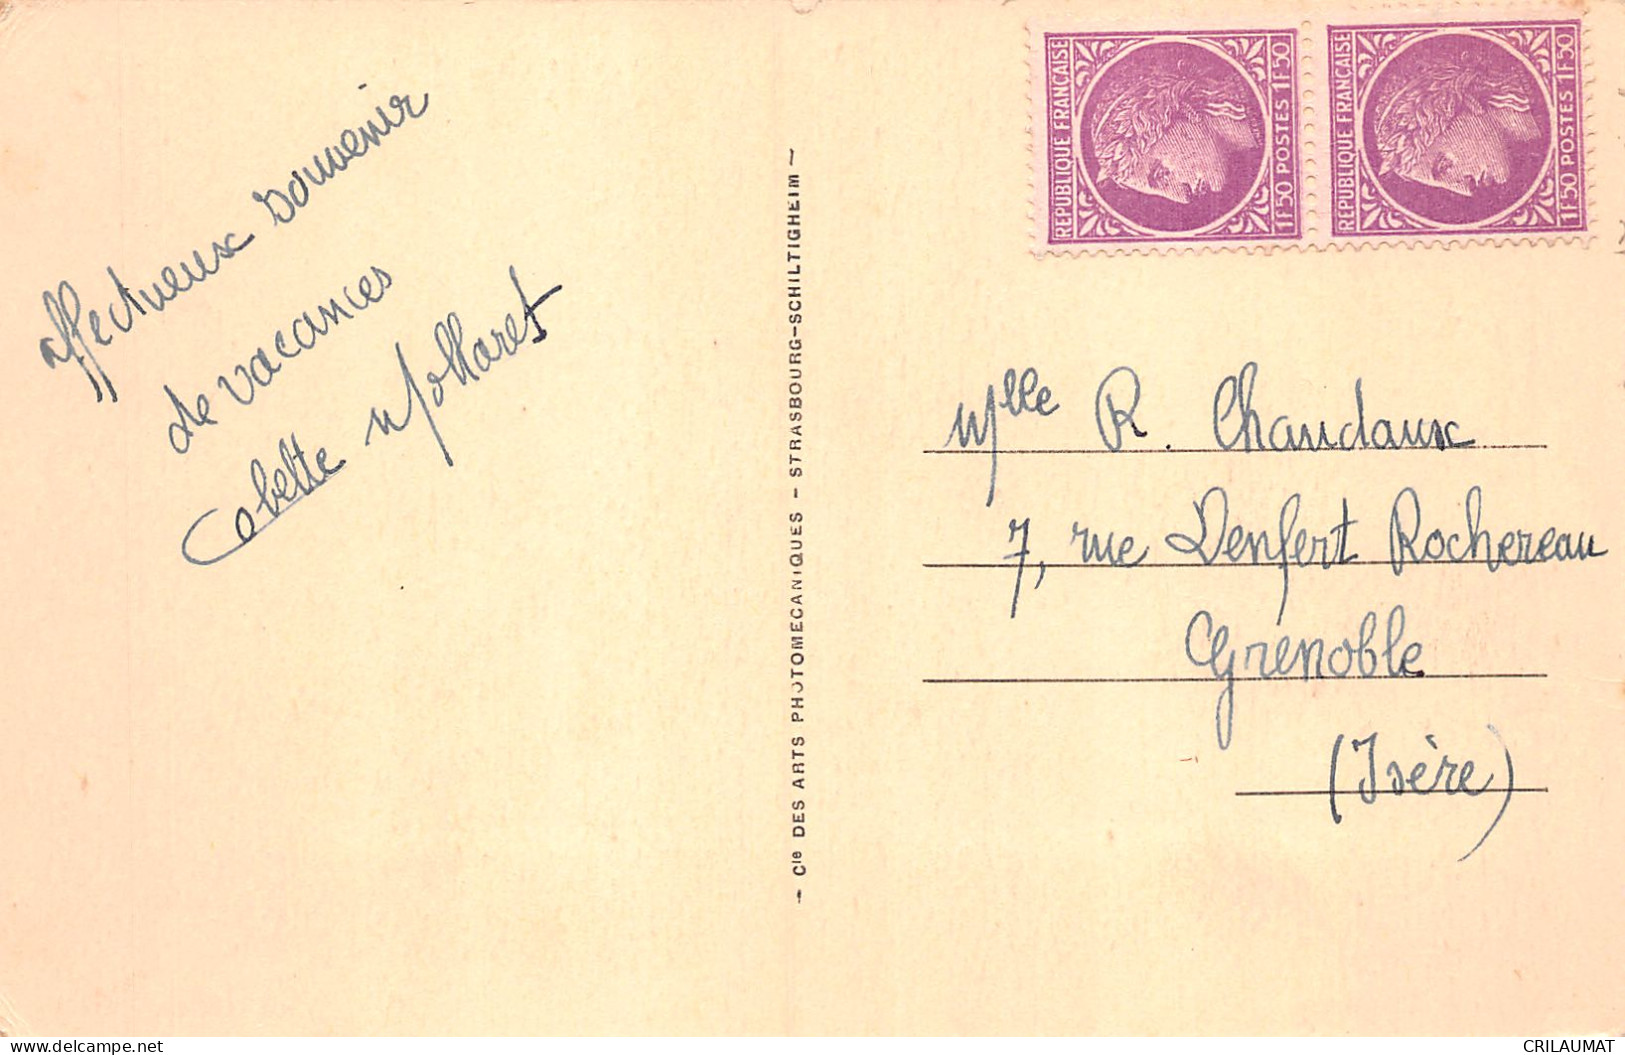 affectueux Souvenir
de vacances
Colette Mollaret
– Cie DES ARTS PHOTOMECANIQUES – STRASBOURG-SCHILTIGHEIM –
REPUBLIQUE FRANÇAISE
1F50 POSTES 1F50
REPUBLIQUE FRANÇAISE
1F50 POSTES 1F50
Mlle R. Chaudaux
7, rue Denfert Rochereau
Grenoble
(Isère)
delcampe.net
CRILAUMAT